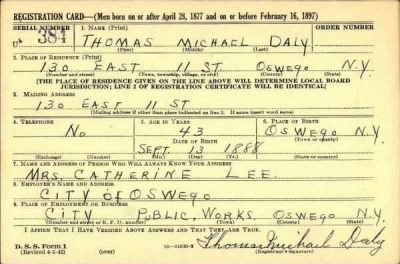 REGISTRATION CARD—(Men born on or after April 28, 1877 and on or before February 16, 1897)
SERIAL NUMBER 1. NAME (Print) ORDER NUMBER
U 384 THOMAS MICHAEL DALY
(First) (Middle) (Last)
2. PLACE OF RESIDENCE (Print)
130 EAST 11 ST OSWEGO N.Y.
(Number and street) (Town, township, village, or city) (County) (State)
[THE PLACE OF RESIDENCE GIVEN ON THE LINE ABOVE WILL DETERMINE LOCAL BOARD
JURISDICTION; LINE 2 OF REGISTRATION CERTIFICATE WILL BE IDENTICAL]
3. MAILING ADDRESS
130 EAST 11 ST
(Mailing address if other than place indicated on line 2. If same insert word same)
4. TELEPHONE 5. AGE IN YEARS 6. PLACE OF BIRTH
NO 43 OSWEGO N.Y.
DATE OF BIRTH (Town or county)
SEPT 13 1888
(Exchange) (Number) (Mo.) (Day) (Yr.) (State or country)
7. NAME AND ADDRESS OF PERSON WHO WILL ALWAYS KNOW YOUR ADDRESS
MRS. CATHERINE LEE.
8. EMPLOYER'S NAME AND ADDRESS
CITY OF OSWEGO
9. PLACE OF EMPLOYMENT OR BUSINESS
CITY PUBLIC. WORKS. OSWEGO N.Y.
(Number and street or R. F. D. number) (Town) (County) (State)
I AFFIRM THAT I HAVE VERIFIED ABOVE ANSWERS AND THAT THEY ARE TRUE.
D. S. S. Form 1
(Revised 4-1-42) (over) Thomas Michael Daly
(Registrant's signature)